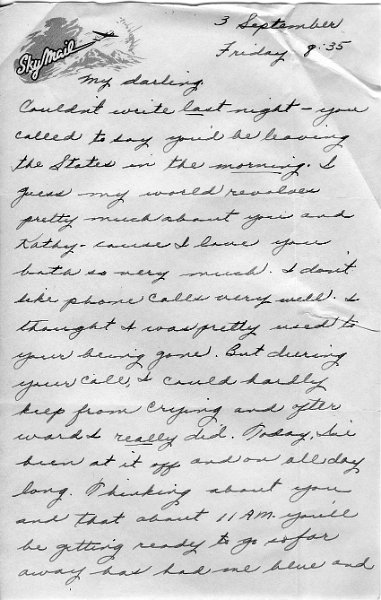 Sky Mail
3 September
Friday 9:35
My darling
Couldn't write last night - you
called to say you'd be leaving
the States in the morning. I
guess my world revolves
pretty much about you and
Kathy - cause I love you
both so very much. I don't
like phone calls very well. I
thought I was pretty used to
your being gone. But during
your call, I could hardly
keep from crying and after
wards I really did. Today, I've
been at it off and on all day
long. Thinking about you
and that about 11 AM. you'll
be getting ready to go so far
away has had me blue and